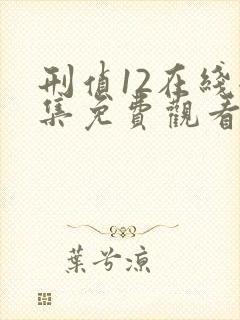 刑偵12在綫
集免費觀看
葉兮涼